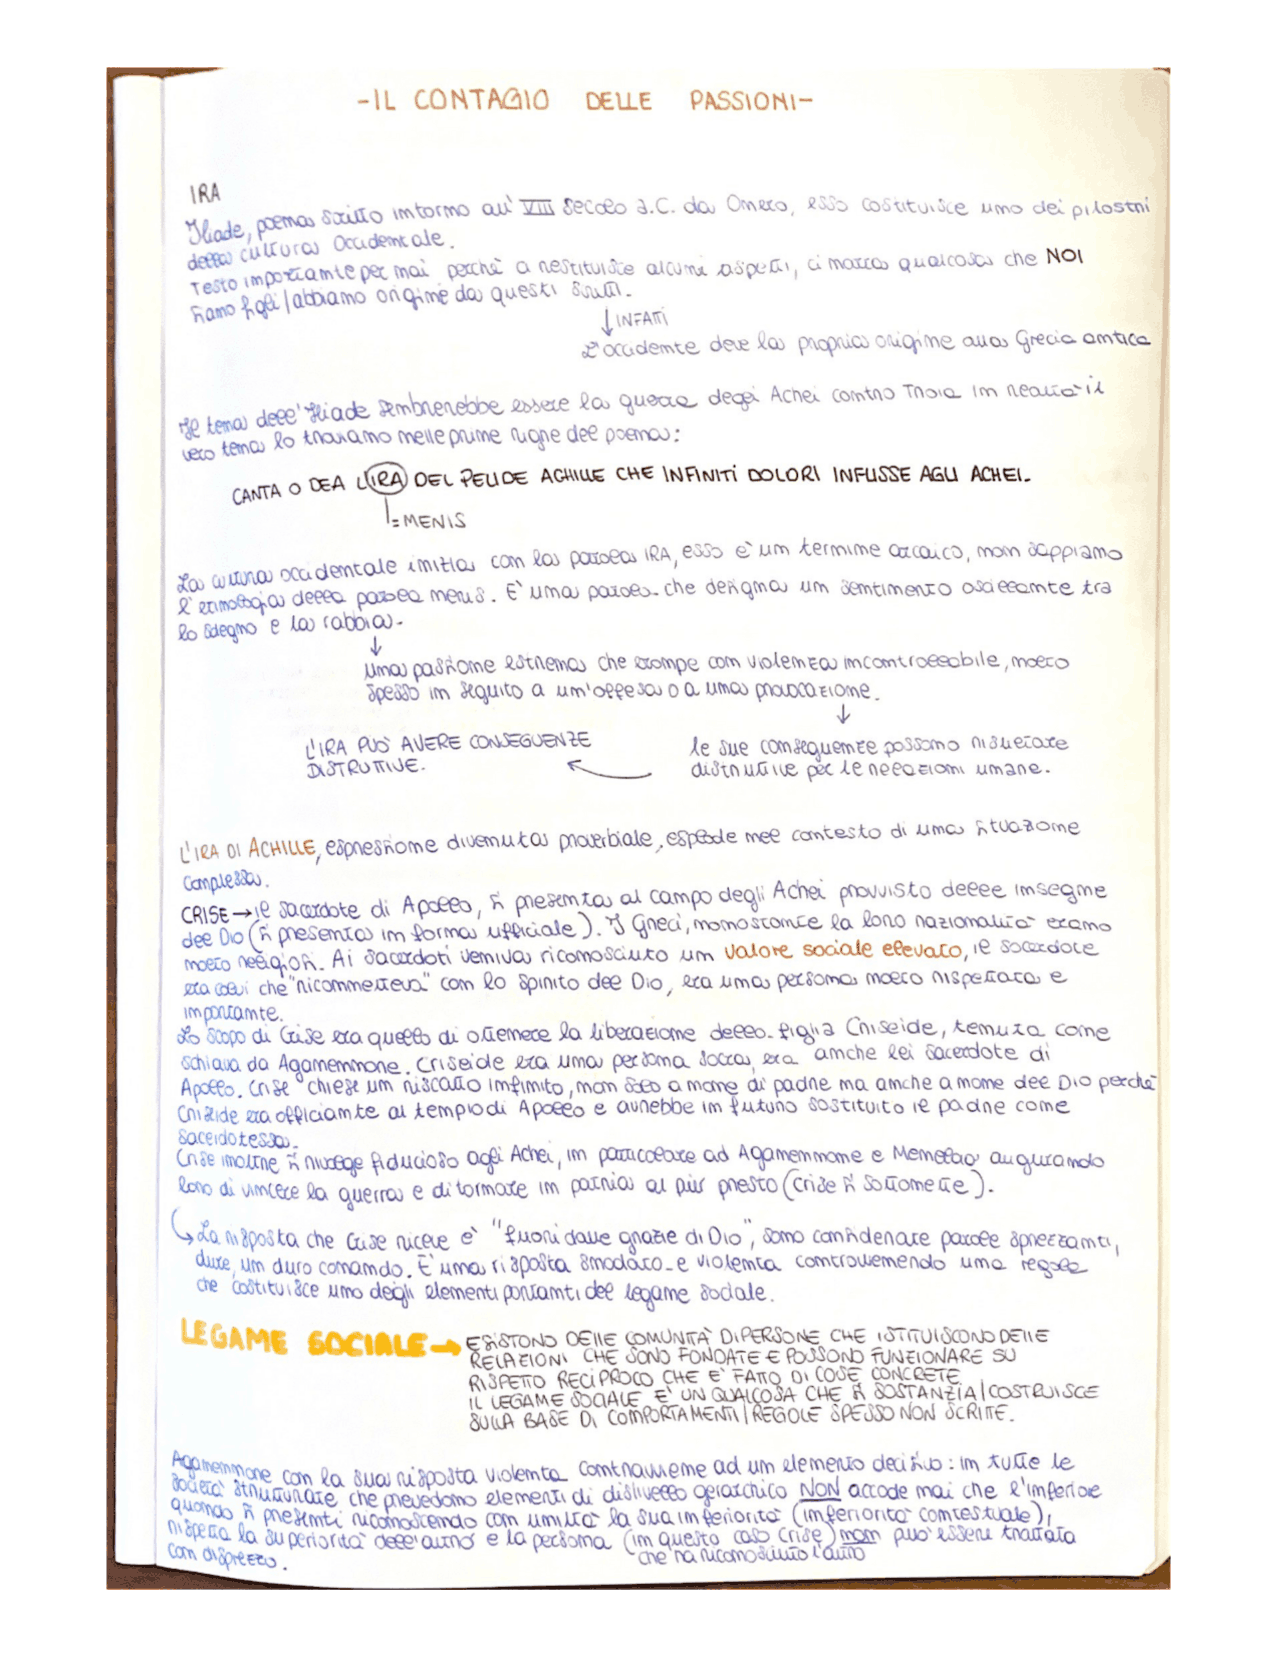 -IL CONTAGIO DELLE PASSIONI-
IRA
Iliade, poema scritto intorno all' VIII secolo a.C. da Omero, esso costituisce uno dei pilastri
della cultura Occidentale.
Testo importante per noi perchè a restituisce alcuni aspetti, ci marca qualcosa che NOI
siamo figli/abbiamo origine da questi scritti.
↓ INFATTI
L'occidente deve la propria origine alla Grecia antica
Il tema dell'Iliade sembrerebbe essere la guerra degli Achei contro Troia in realtà il
vero tema lo troviamo nelle prime righe del poema:
CANTA O DEA L'IRA DEL PELIDE ACHILLE CHE INFINITI DOLORI INFLISSE AGLI ACHEI.
= MENIS
La cultura occidentale inizia con la parola IRA, esso è un termine arcaico, non sappiamo
l'etimologia della parola menis. È una parola che designa un sentimento oscillante tra
lo sdegno e la rabbia.
↓
una passione estrema che erompe con violenza incontrollabile, molto
spesso in seguito a un'offesa o a una provocazione.
↓
L'IRA PUÒ AVERE CONSEGUENZE
DISTRUTTIVE.
le sue conseguenze possono risultare
distruttive per le relazioni umane.
L'IRA DI ACHILLE, espressione divenuta proverbiale, esplode nel contesto di una situazione
complessa.
CRISE → il sacerdote di Apollo, si presenta al campo degli Achei provvisto delle insegne
del Dio (si presenta in forma ufficiale). I Greci, nonostante la loro nazionalità erano
molto religiosi. Ai sacerdoti veniva riconosciuto un valore sociale elevato, il sacerdote
era colui che "riconnetteva" con lo spirito del Dio, era una persona molto rispettata e
importante.
Lo scopo di Crise era quello di ottenere la liberazione della figlia Criseide, tenuta come
schiava da Agamennone. Criseide era una persona sacra, era anche lei sacerdote di
Apollo. Crise chiese un riscatto infinito, non solo a nome di padre ma anche a nome del Dio perchè
Criseide era officiante al tempio di Apollo e avrebbe in futuro sostituito il padre come
sacerdotessa.
Crise inoltre si rivolge fiducioso agli Achei, in particolare ad Agamennone e Menelao augurando
loro di vincere la guerra e di tornare in patria al più presto (Crise si sottomette).
↳ La risposta che Crise riceve è "fuori dalle grazie di Dio", sono considerate parole sprezzanti,
dure, un duro comando. È una risposta smodata e violenta contravvenendo una regola
che costituisce uno degli elementi portanti del legame sociale.
LEGAME SOCIALE → ESISTONO DELLE COMUNITÀ DI PERSONE CHE ISTITUISCONO DELLE
RELAZIONI CHE SONO FONDATE E POSSONO FUNZIONARE SU
RISPETTO RECIPROCO CHE E' FATTO DI COSE CONCRETE
IL LEGAME SOCIALE E' UN QUALCOSA CHE SI SOSTANZIA/COSTRUISCE
SULLA BASE DI COMPORTAMENTI/REGOLE SPESSO NON SCRITTE.
Agamennone con la sua risposta violenta contravviene ad un elemento decisivo: in tutte le
società strutturate che prevedono elementi di dislivello gerarchico NON accade mai che l'inferiore
quando si presenti riconoscendo con umiltà la sua inferiorità (inferiorità contestuale),
rispetta la superiorità dell'altro e la persona (in questo caso Crise) non può essere trattata
con disprezzo.
che ha riconosciuto l'altro